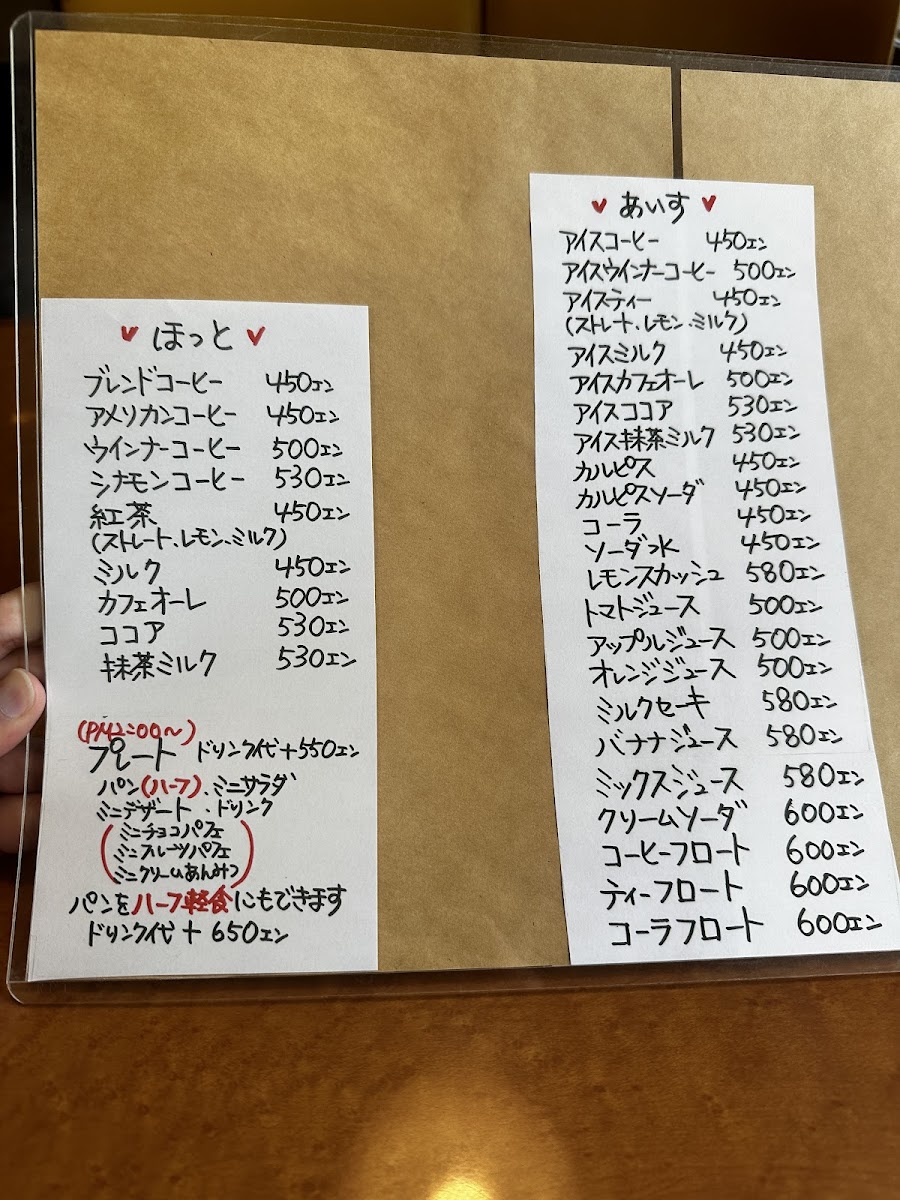 ♥ ほっと ♥
ブレンドコーヒー 450エン
アメリカンコーヒー 450エン
ウインナーコーヒー 500エン
シナモンコーヒー 530エン
紅茶 450エン
(ストレート、レモン、ミルク)
ミルク 450エン
カフェオーレ 500エン
ココア 530エン
抹茶ミルク 530エン
(PM2:00〜)
プレート ドリンク代+550エン
パン(ハーフ)、ミニサラダ
ミニデザート・ドリンク
(ミニチョコパフェ
ミニフルーツパフェ
ミニクリームあんみつ)
パンをハーフ軽食にもできます
ドリンク代+650エン
♥ あいす ♥
アイスコーヒー 450エン
アイスウインナーコーヒー 500エン
アイスティー 450エン
(ストレート、レモン、ミルク)
アイスミルク 450エン
アイスカフェオーレ 500エン
アイスココア 530エン
アイス抹茶ミルク 530エン
カルピス 450エン
カルピスソーダ 450エン
コーラ 450エン
ソーダ水 450エン
レモンスカッシュ 580エン
トマトジュース 500エン
アップルジュース 500エン
オレンジジュース 500エン
ミルクセーキ 580エン
バナナジュース 580エン
ミックスジュース 580エン
クリームソーダ 600エン
コーヒーフロート 600エン
ティーフロート 600エン
コーラフロート 600エン